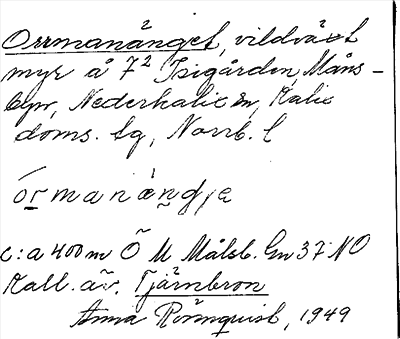 Orrmanänget, vildväxt
myr å 7² Tsigården, Måns-
byn, Nederkalix sn, Kalix
doms. tg, Norrb. l
órmanànʒe
c:a 400 m Ö M Målsb. Gn 37 NO
Kall. äv. Tjärnbron
Anna Rönnquist, 1949